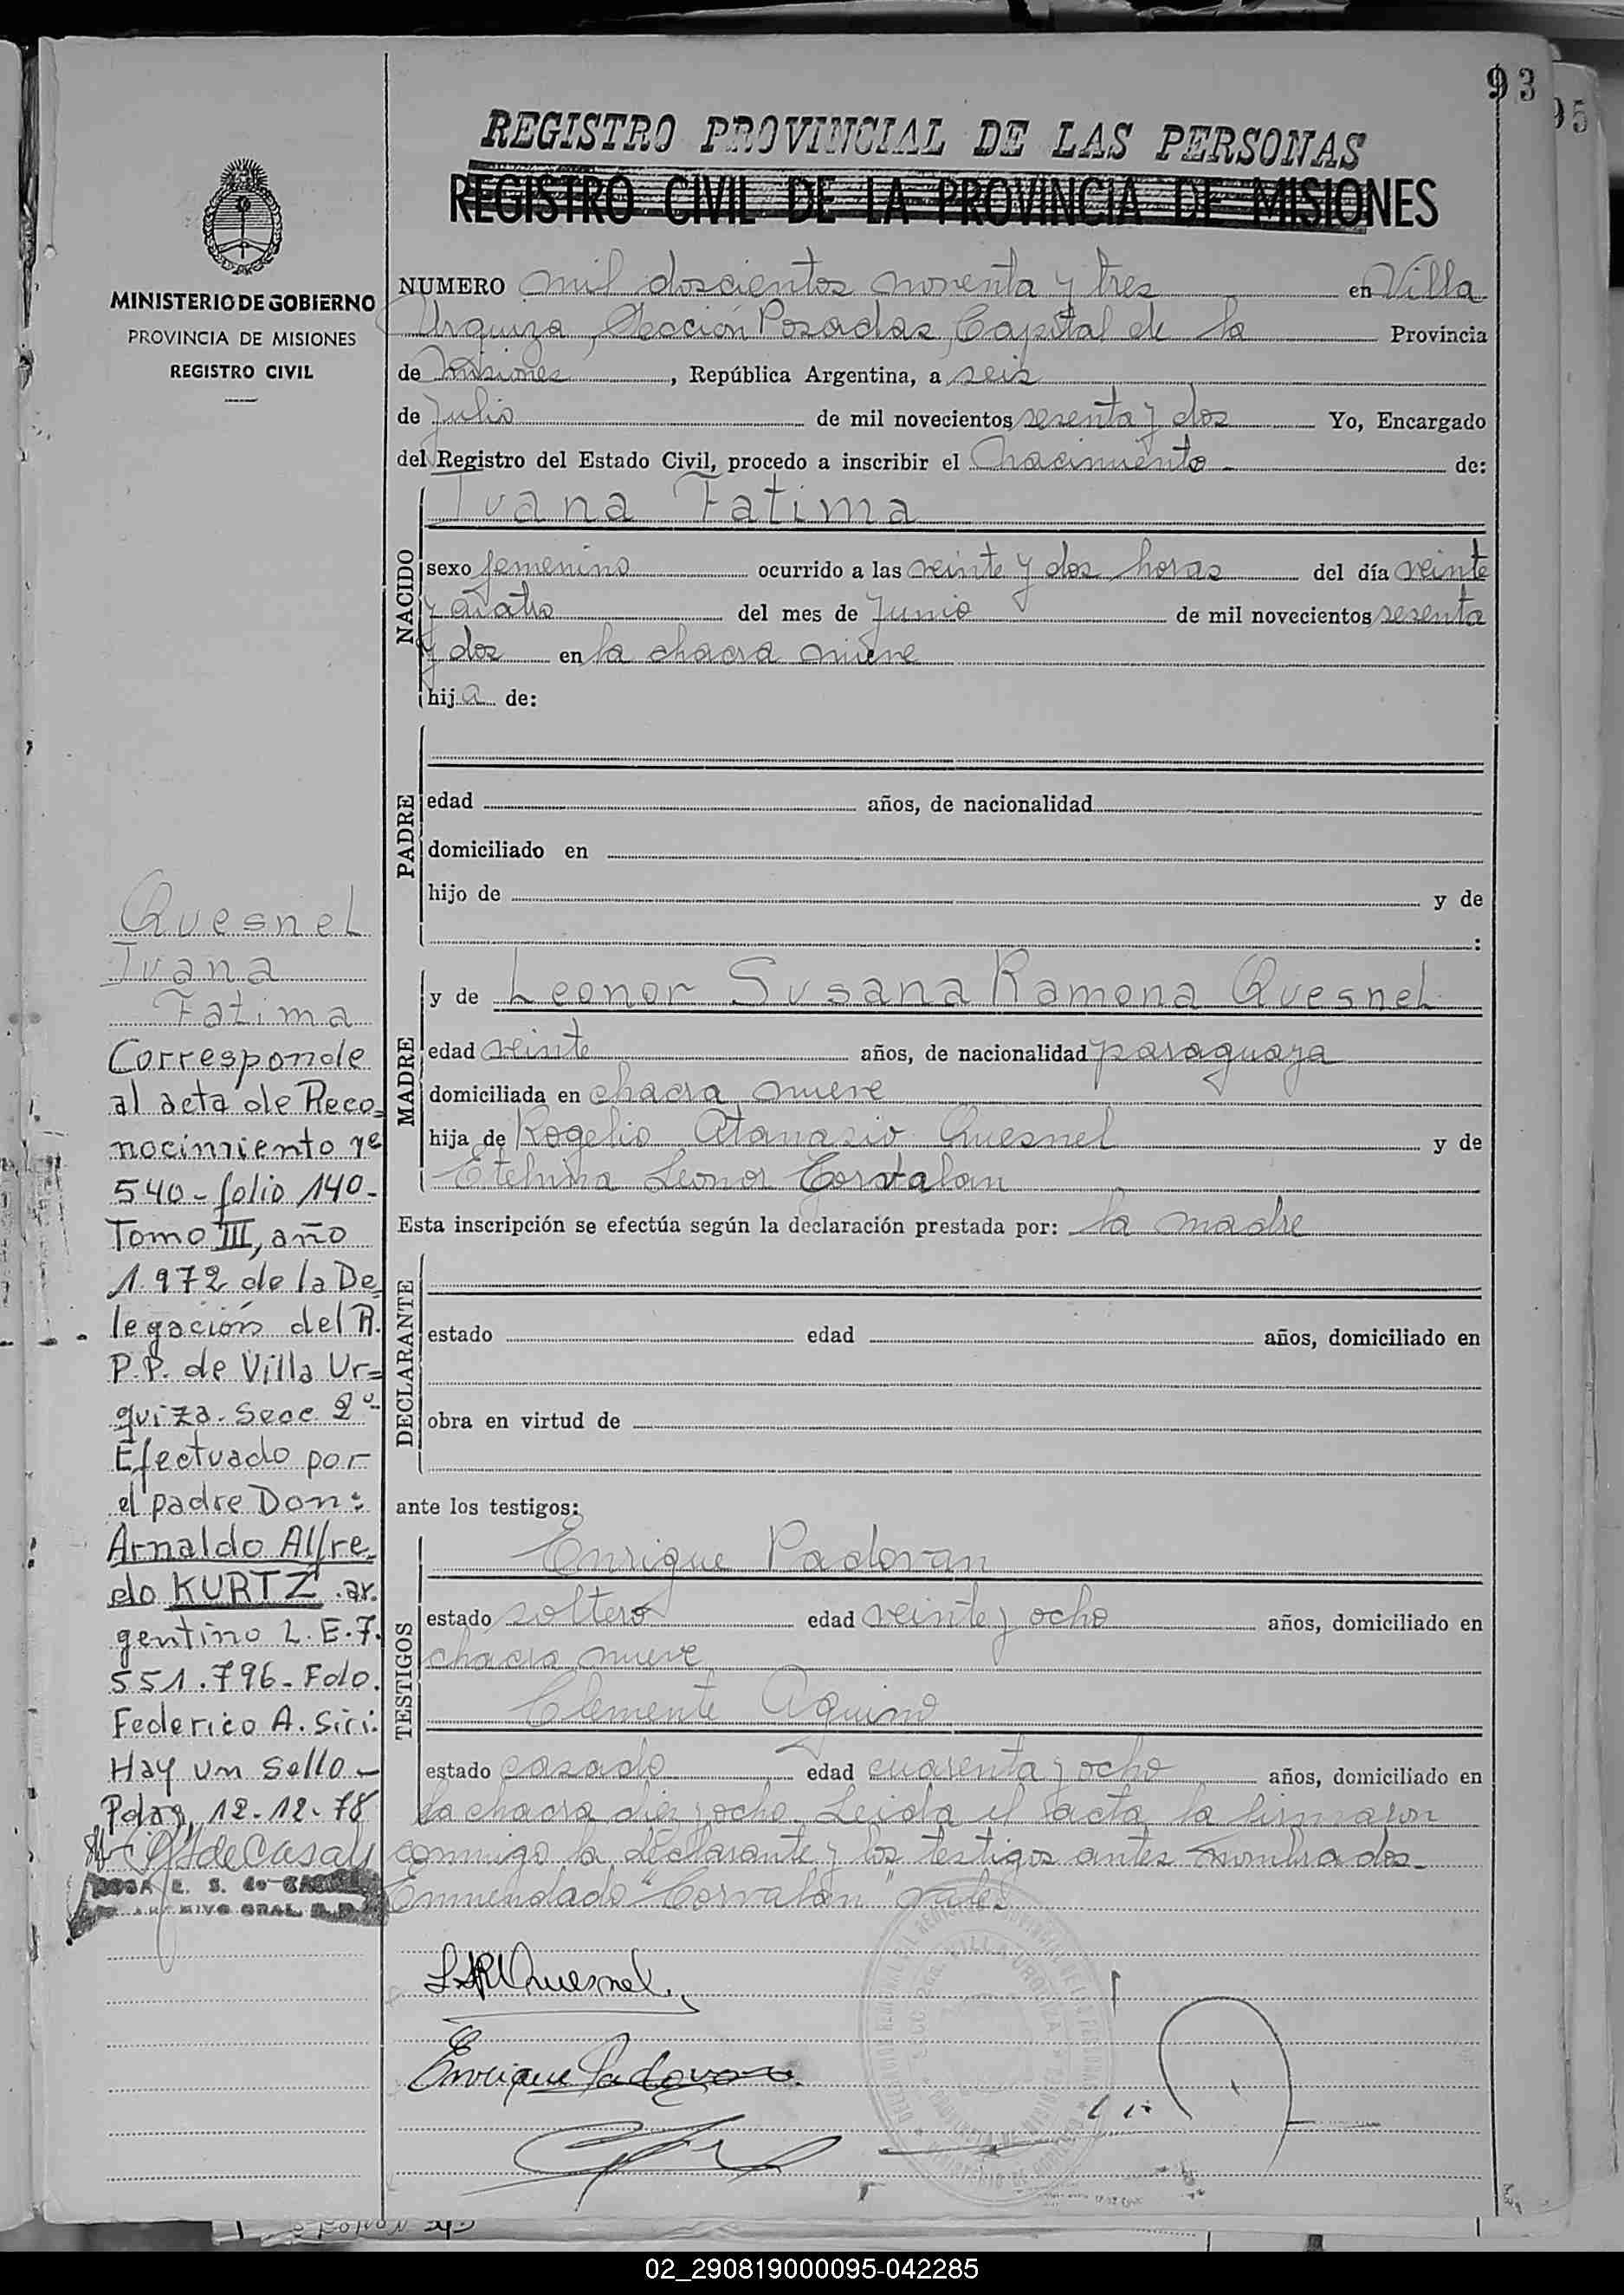 93
95
REGISTRO PROVINCIAL DE LAS PERSONAS
REGISTRO CIVIL DE LA PROVINCIA DE MISIONES
MINISTERIO DE GOBIERNO
PROVINCIA DE MISIONES
REGISTRO CIVIL
NUMERO mil doscientos noventa y tres en Villa
Urquiza, Sección Posadas, Capital de la Provincia
de Misiones, República Argentina, a seis
de Julio de mil novecientos sesenta y dos Yo, Encargado
del Registro del Estado Civil, procedo a inscribir el nacimiento de:
NACIDO
Ivana Fatima
sexo femenino ocurrido a las veinte y dos horas del día veinte
y cuatro del mes de Junio de mil novecientos sesenta
y dos en la chacra nueve
hija de:
PADRE
edad años, de nacionalidad
domiciliado en
hijo de y de
:
MADRE
y de Leonor Susana Ramona Quesnel
edad veinte años, de nacionalidad paraguaya
domiciliada en chacra nueve
hija de Rogelio Atanasio Quesnel y de
Etelvina Leonor Corvalan
Esta inscripción se efectúa según la declaración prestada por: la madre
DECLARANTE
estado edad años, domiciliado en
obra en virtud de
ante los testigos:
TESTIGOS
Enrique Padovan
estado soltero edad veinte y ocho años, domiciliado en
chacra nueve
Clemente Aquino
estado casado edad cuarenta y ocho años, domiciliado en
la chacra diez y ocho. Leida el acta la firmaron
conmigo la declarante y los testigos antes nombrados.
Enmendado "Corvalan" vale.
Quesnel
Ivana
Fatima
Corresponde
al acta de Reco=
nocimiento nº
540-folio 140-
Tomo III, año
1.972 de la De
legación del R.
P.P. de Villa Ur=
quiza. Secc. 2º
Efectuado por
el padre Don:
Arnaldo Alfre
do KURTZ ar.
gentino L.E.7.
551.796-Fdo.
Federico A. Siri.
Hay un Sello-
Pdas, 12-12-78
de Casals
ROSA E. S. de
ARCHIVO GRAL.
Quesnel
Enrique Padovan
VILLA URQUIZA
02_290819000095-042285